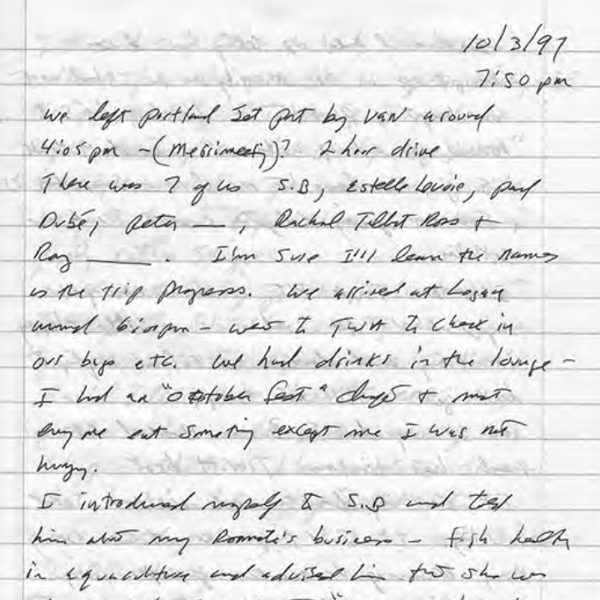 10/3/97
7:50 pm
we left portland Jet port by van around
4:05 pm - (Merrimeeting)? 2 hour drive
There was 7 of us S.B, Estelle Lavoie, paul
Dubé, peter ___, Rachel Talbot Ross +
Ray ___. I'm sure I'll learn the names
as the trip progress. We arrived at Logan
around 6:00pm - went to TWA to check in
our bags etc. We had drinks in the lounge -
I had an "Octtober fest" draft + most
every one eat someting except me I was not
hungry.
I introduced myself to S.B and told
him about my Romate's business - fish health
in aquaculture and advised him that she was